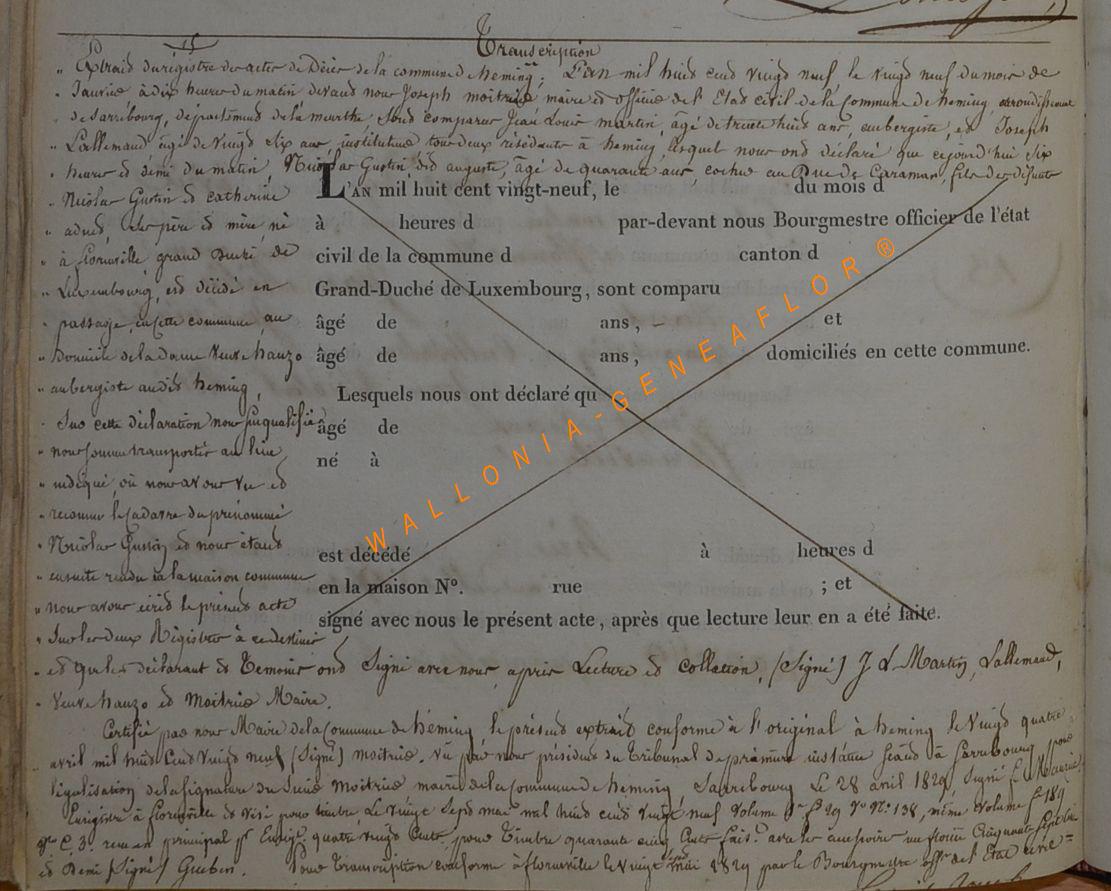 15
Transcription
„ Extrait du régistre des actes de Décès de la commune d heming; L'an mil huit cent vingt neuf le vingt neuf du mois de
„ Janvier à dix heures du matin devant nous Joseph moitrié, maire et officier de l'Etat civil de la Commune de heming, arrondissement
„ de sarrebourg, département de la meurthe sont comparus Jean Louis martin, âgé de trente huit ans, aubergiste, et Joseph
„ Lallemand âgé de vingt six ans, instituteur tous deux résidants à heming, lesquels nous ont déclaré que cejourd'hui six
„ heures et demi du matin, Nicolas Gustin dit auguste, âgé de quarante ans cocher au Duc de Caraman, fils des défunts
„ Nicolas Gustin et catherine
„ adnet, ses père et mère, né
„ à florenville grand Duché de
„ Luxembourg, est décédé en
„ passage, en cette commune, au
„ Domicile de la dame Veuve hanzo
„ aubergiste audit heming,
„ Sur cette déclaration nous susqualifié
„ nous somme transportés au lieu
„ indiqué, où nous avons vu et
„ reconnu le cadavre du prénommé
„ Nicolas Gustin et nous étant
„ ensuite rendu à la maison commune
„ nous avons écrit le présent acte
„ Sur les deux Régistres à ce destinés
L'AN mil huit cent vingt-neuf, le du mois d
à heures d par-devant nous Bourgmestre officier de l'état
civil de la commune d canton d
Grand-Duché de Luxembourg, sont comparu
âgé de ans, et
âgé de ans, domiciliés en cette commune.
Lesquels nous ont déclaré qu
âgé de
né à
est décédé à heures d
en la maison N°. rue ; et
signé avec nous le présent acte, après que lecture leur en a été faite.
WALLONIA-GENEAFLOR ®
„ et que les déclarant et Temoins ont Signé avec nous, après Lecture et collation, (Signé) J L Martin, Lallemand,
„ Veuve hanzo et moitrié Maire.
Certifié par nous Maire de la Commune de héming, le présent extrait conforme à l'original à heming le Vingt quatre
„ avril mil huit Cent Vingt neuf (Signé) moitrié, vu par nous président du Tribunal de première instance séant à Sarrebourg pour
légalisation de la signature du Sieur moitrié maire de la Commune de heming Sarrebourg Le 28 avril 1829, Signé
Enrégistré à florenville et visé pour timbre, Le vingt Sept mai mil huit cent vingt neuf Volume f° 29 V° N° 138, même Volume f° 189
C. 3. reçu en principal pr Enregt quatre vingt Cents, pour Timbre quarante cinq Cents fait avec les un florin Cinquante Sept Cts
et Demi (Signé) Guben. Pour Transcription conforme à florenville le Vingt mai 1829 par le Bourgmestre offer de l'Etat civil